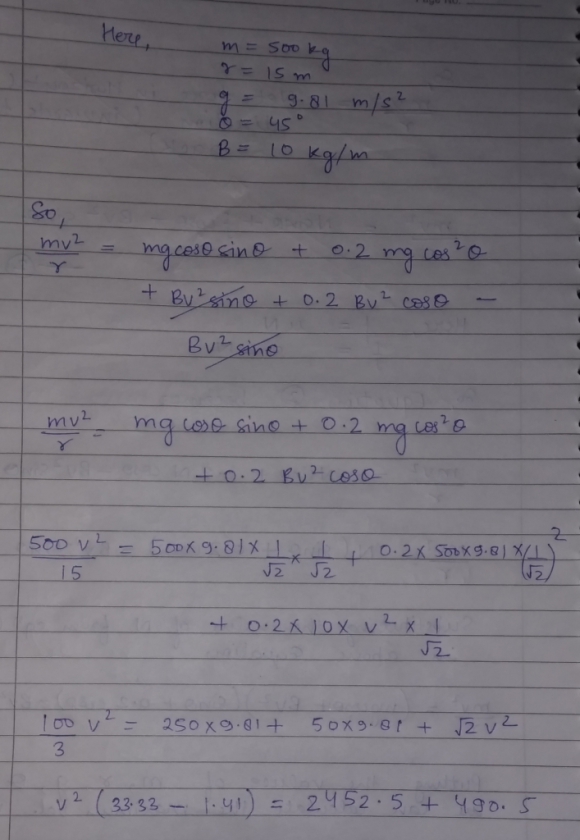 Here,
m = 500 kg
r = 15 m
g = 9.81 m/s²
θ = 45°
B = 10 kg/m
So,
mv²/r = mg cosθ sinθ + 0.2 mg cos²θ
+ Bv² sinθ + 0.2 Bv² cosθ −
Bv² sinθ
mv²/r = mg cosθ sinθ + 0.2 mg cos²θ
+ 0.2 Bv² cosθ
500 v²/15 = 500×9.81×1/√2 × 1/√2 + 0.2×500×9.81×(1/√2)²
+ 0.2×10× v² × 1/√2
100/3 v² = 250×9.81 + 50×9.81 + √2 v²
v² (33.33 − 1.41) = 2452.5 + 490.5